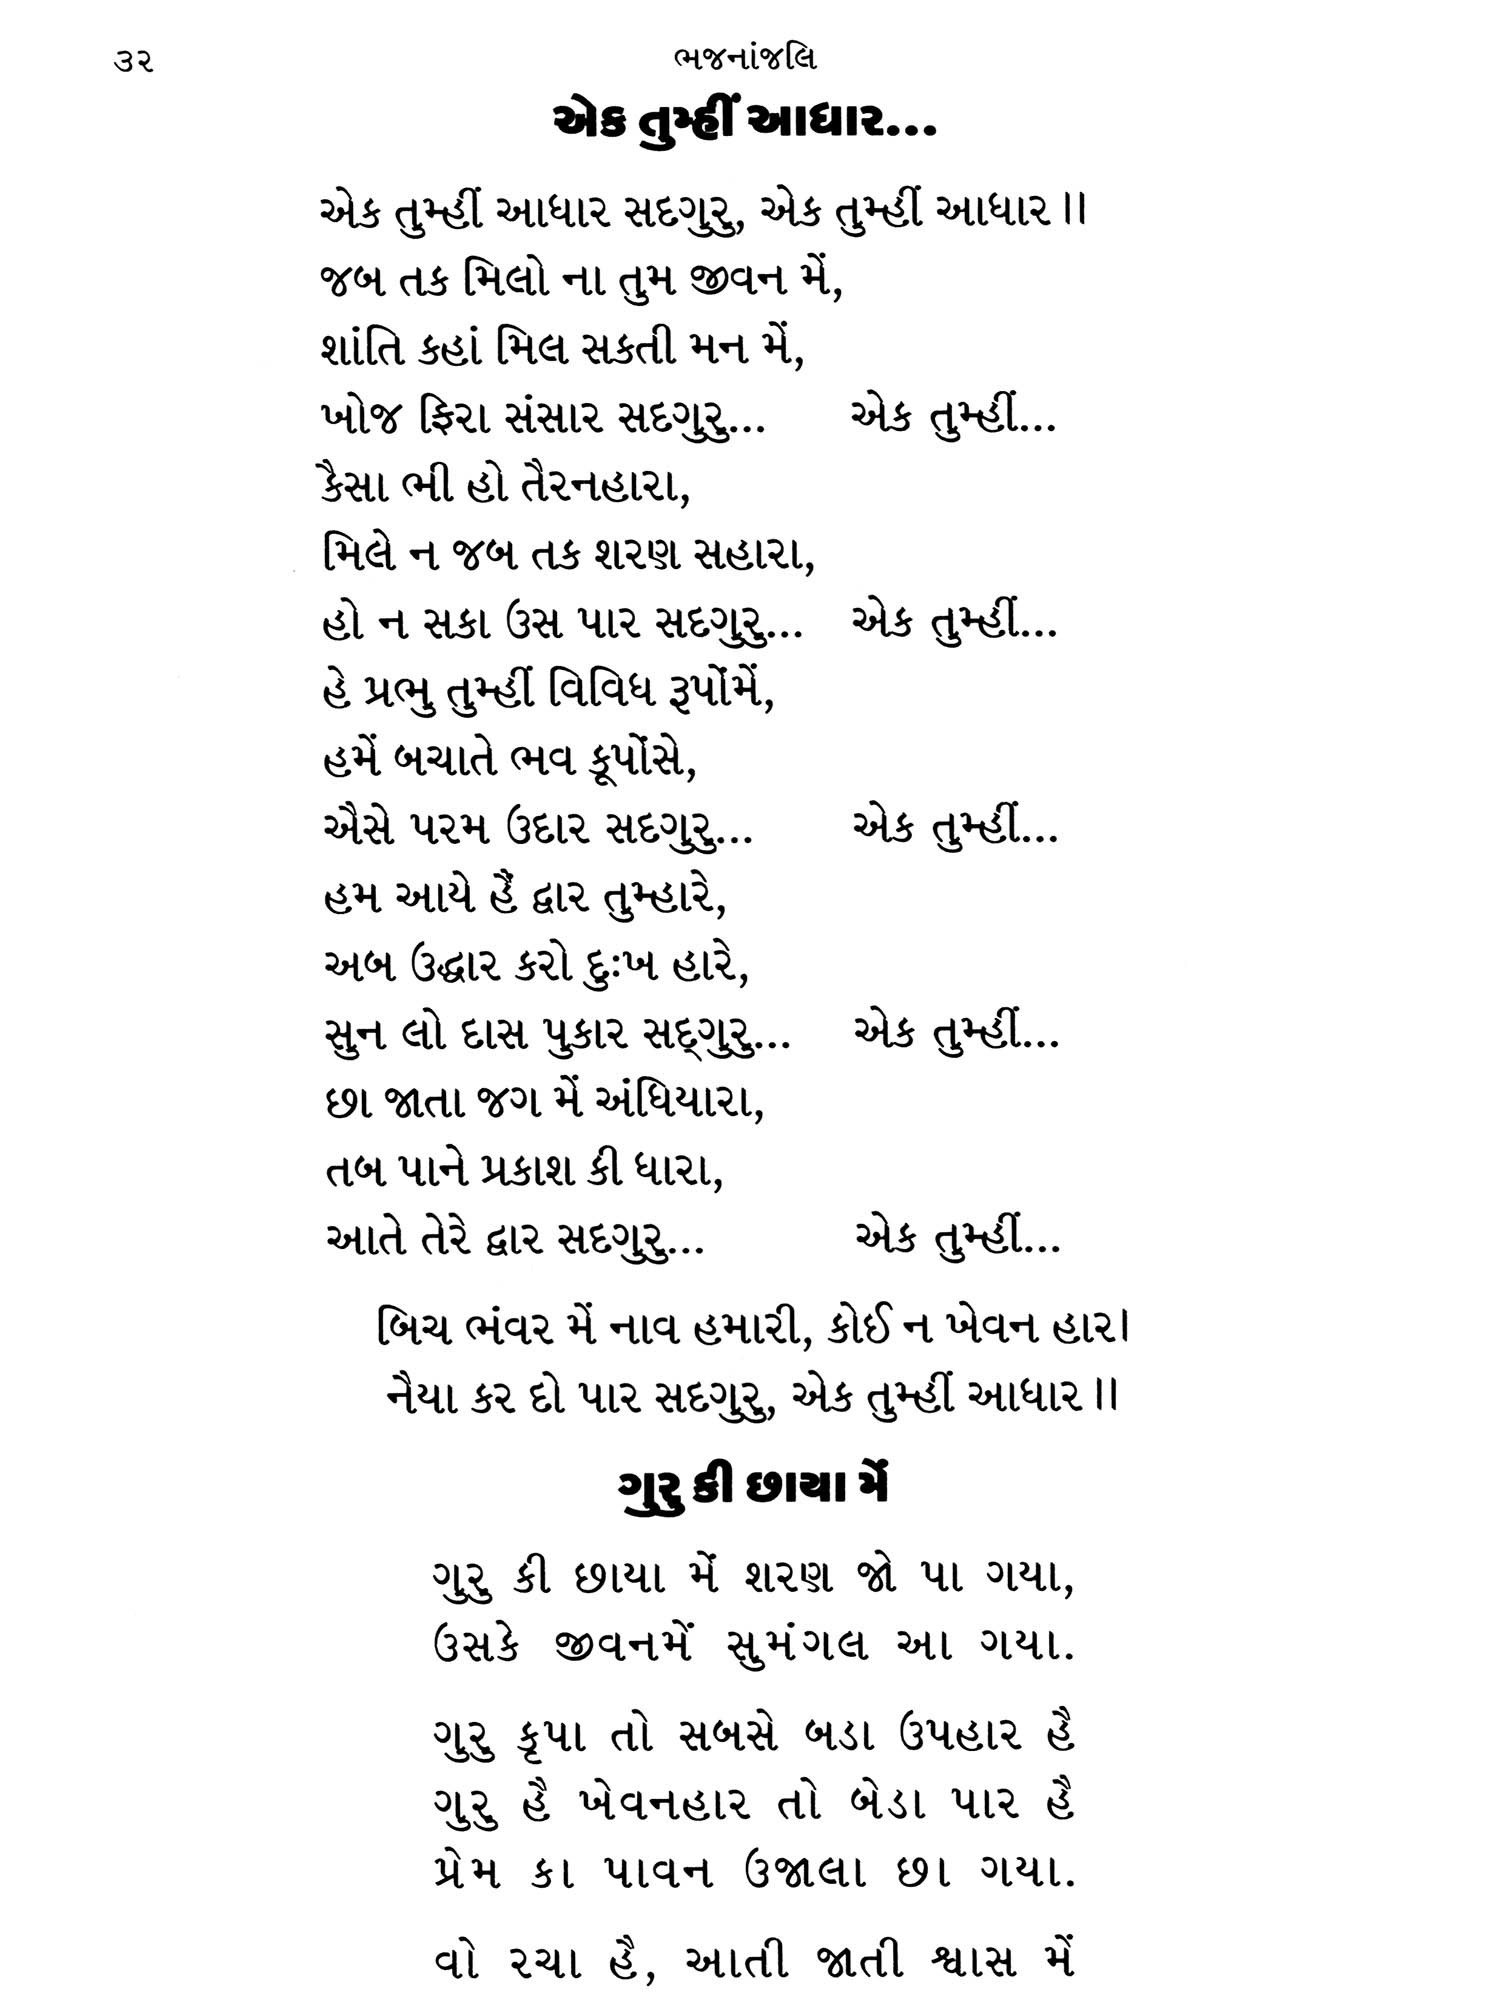 ૩૨ ભજનાંજલિ
એક તુમ્હીં આધાર...
એક તુમ્હીં આધાર સદગુરુ, એક તુમ્હીં આધાર॥
જબ તક મિલો ના તુમ જીવન મેં,
શાંતિ કહાં મિલ સકતી મન મેં,
ખોજ ફિરા સંસાર સદગુરુ... એક તુમ્હીં...
કૈસા ભી હો તૈરનહારા,
મિલે ન જબ તક શરણ સહારા,
હો ન સકા ઉસ પાર સદગુરુ... એક તુમ્હીં...
હે પ્રભુ તુમ્હીં વિવિધ રૂપોંમેં,
હમેં બચાતે ભવ કૂપોંસે,
ઐસે પરમ ઉદાર સદગુરુ... એક તુમ્હીં...
હમ આયે હૈં દ્વાર તુમ્હારે,
અબ ઉદ્ધાર કરો દુઃખ હારે,
સુન લો દાસ પુકાર સદ્‌ગુરુ... એક તુમ્હીં...
છા જાતા જગ મેં અંધિયારા,
તબ પાને પ્રકાશ કી ધારા,
આતે તેરે દ્વાર સદગુરુ... એક તુમ્હીં...
બિચ ભંવર મેં નાવ હમારી, કોઈ ન ખેવન હાર।
નૈયા કર દો પાર સદગુરુ, એક તુમ્હીં આધાર॥
ગુરુ કી છાયા મેં
ગુરુ કી છાયા મેં શરણ જો પા ગયા,
ઉસકે જીવનમેં સુમંગલ આ ગયા.
ગુરુ કૃપા તો સબસે બડા ઉપહાર હૈ
ગુરુ હૈ ખેવનહાર તો બેડા પાર હૈ
પ્રેમ કા પાવન ઉજાલા છા ગયા.
વો રચા હૈ, આતી જાતી શ્વાસ મેં